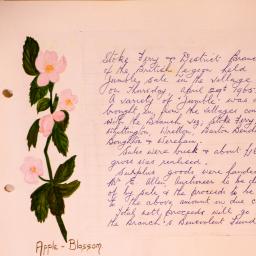 Stoke Ferry & District Branch
of the British Legion held
Jumble Sale in the village
on Thursday, April 29th 1965.
A variety of "Jumble" was
bought in, from the villages
with the Branch, viz; Stoke Ferry
Whittington, Wretton, Barton Bendish
Boughton & Wereham.
Sales were brisk & about £18
gross was realised.
Surplus goods were handed
Mr E. Allen, Auctioneer to be
of by sale, & the proceeds to be
to the above amount in due
Total nett proceeds will go
the Branch's Benevolent Fund
Apple-Blossom